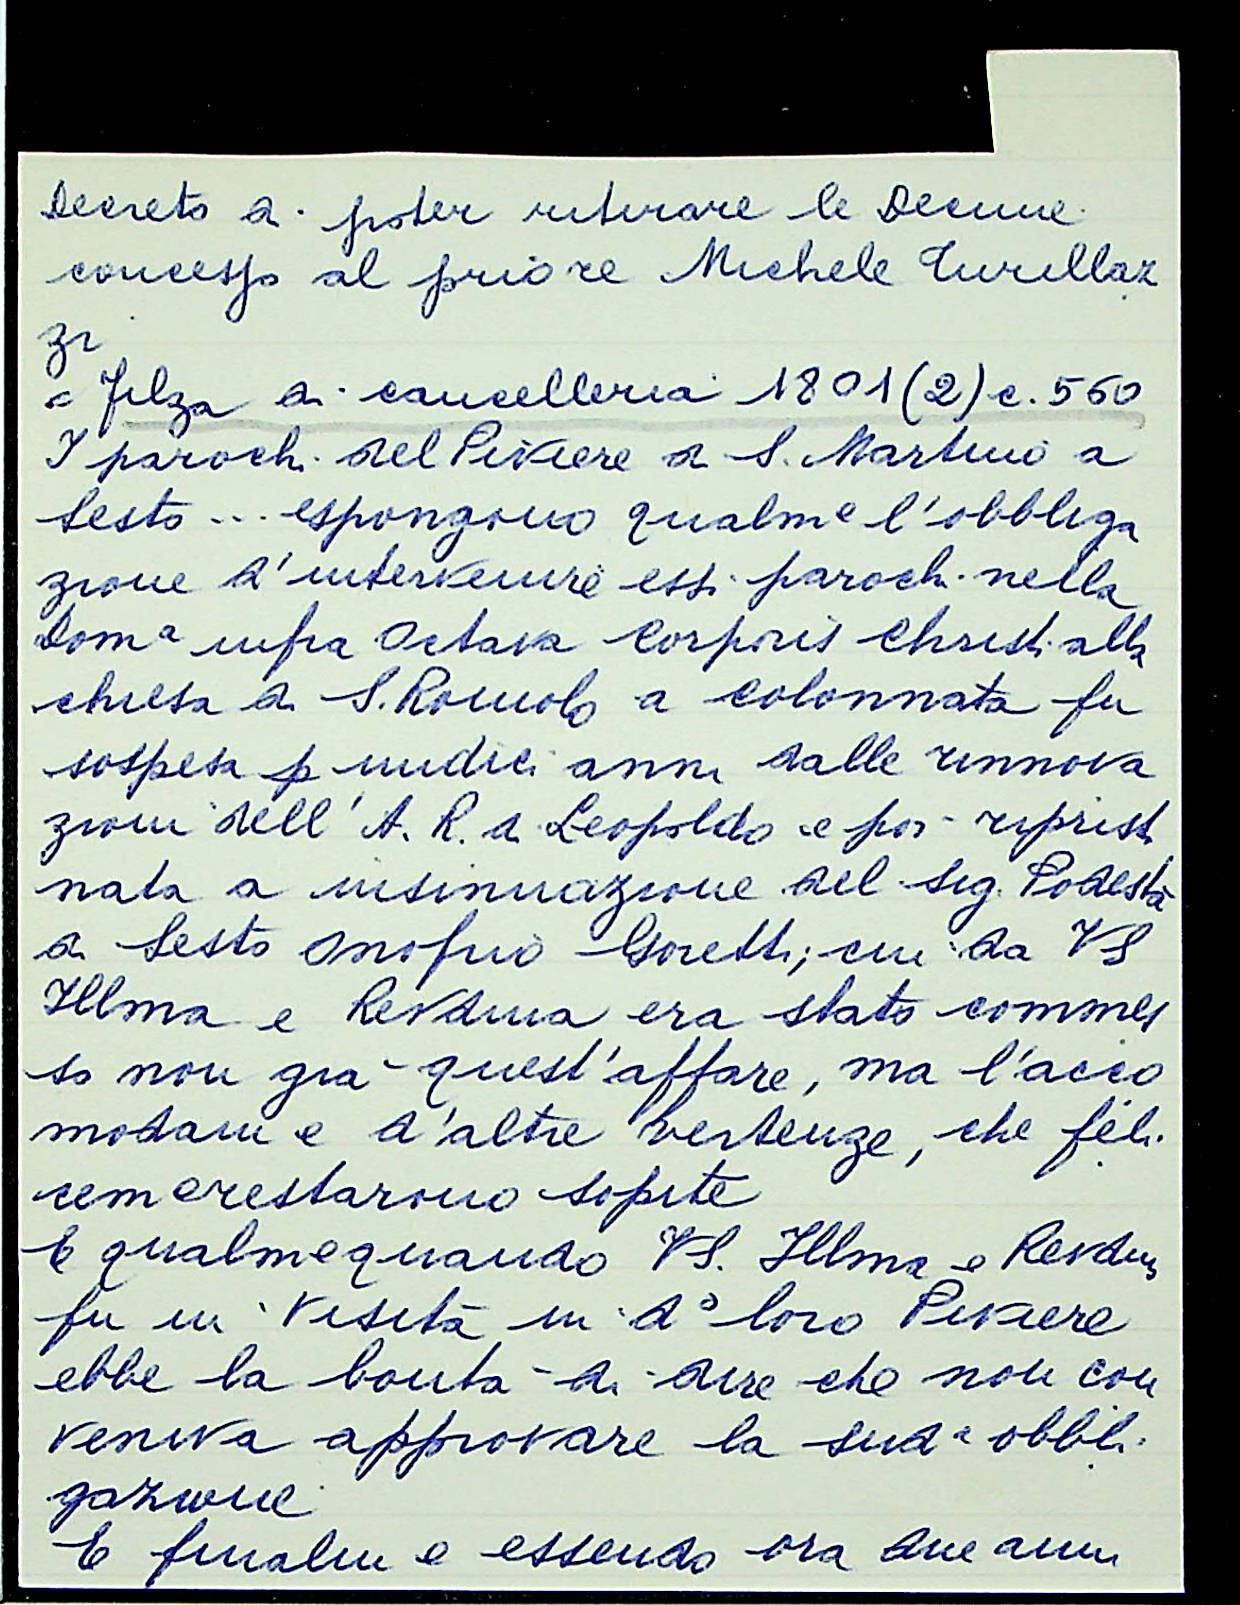 Decreto di poter ritirare le Decime
concesso al priore Michele Turillaz
zi
= Filza di cancelleria 1801 (2) c. 560
I parochi del Piviere di S. Martino a
Sesto ... espongono qualme l'obbliga
zione d'intervenire essi parochi nella
Doma infra Octava Corporis Christi alla
chiesa di S. Romolo a Colonnata fu
sospesa p undici anni dalle rinnova
zioni dell'A. R. di Leopoldo e poi ripristi
nata a insinuazione del sig. Podestà
di Sesto Onofrio Goretti; cui da VS
Illma e Revdma era stato commes
so non già quest'affare, ma l'acco
modam e d'altre vertenze, che feli
ceme restarono sopite
E qualme quando VS. Illma e Revdma
fu in visita in do loro Piviere
ebbe la bontà di dire che non con
veniva approvare la suda obbli
gazione
E finalm e essendo ora due anni